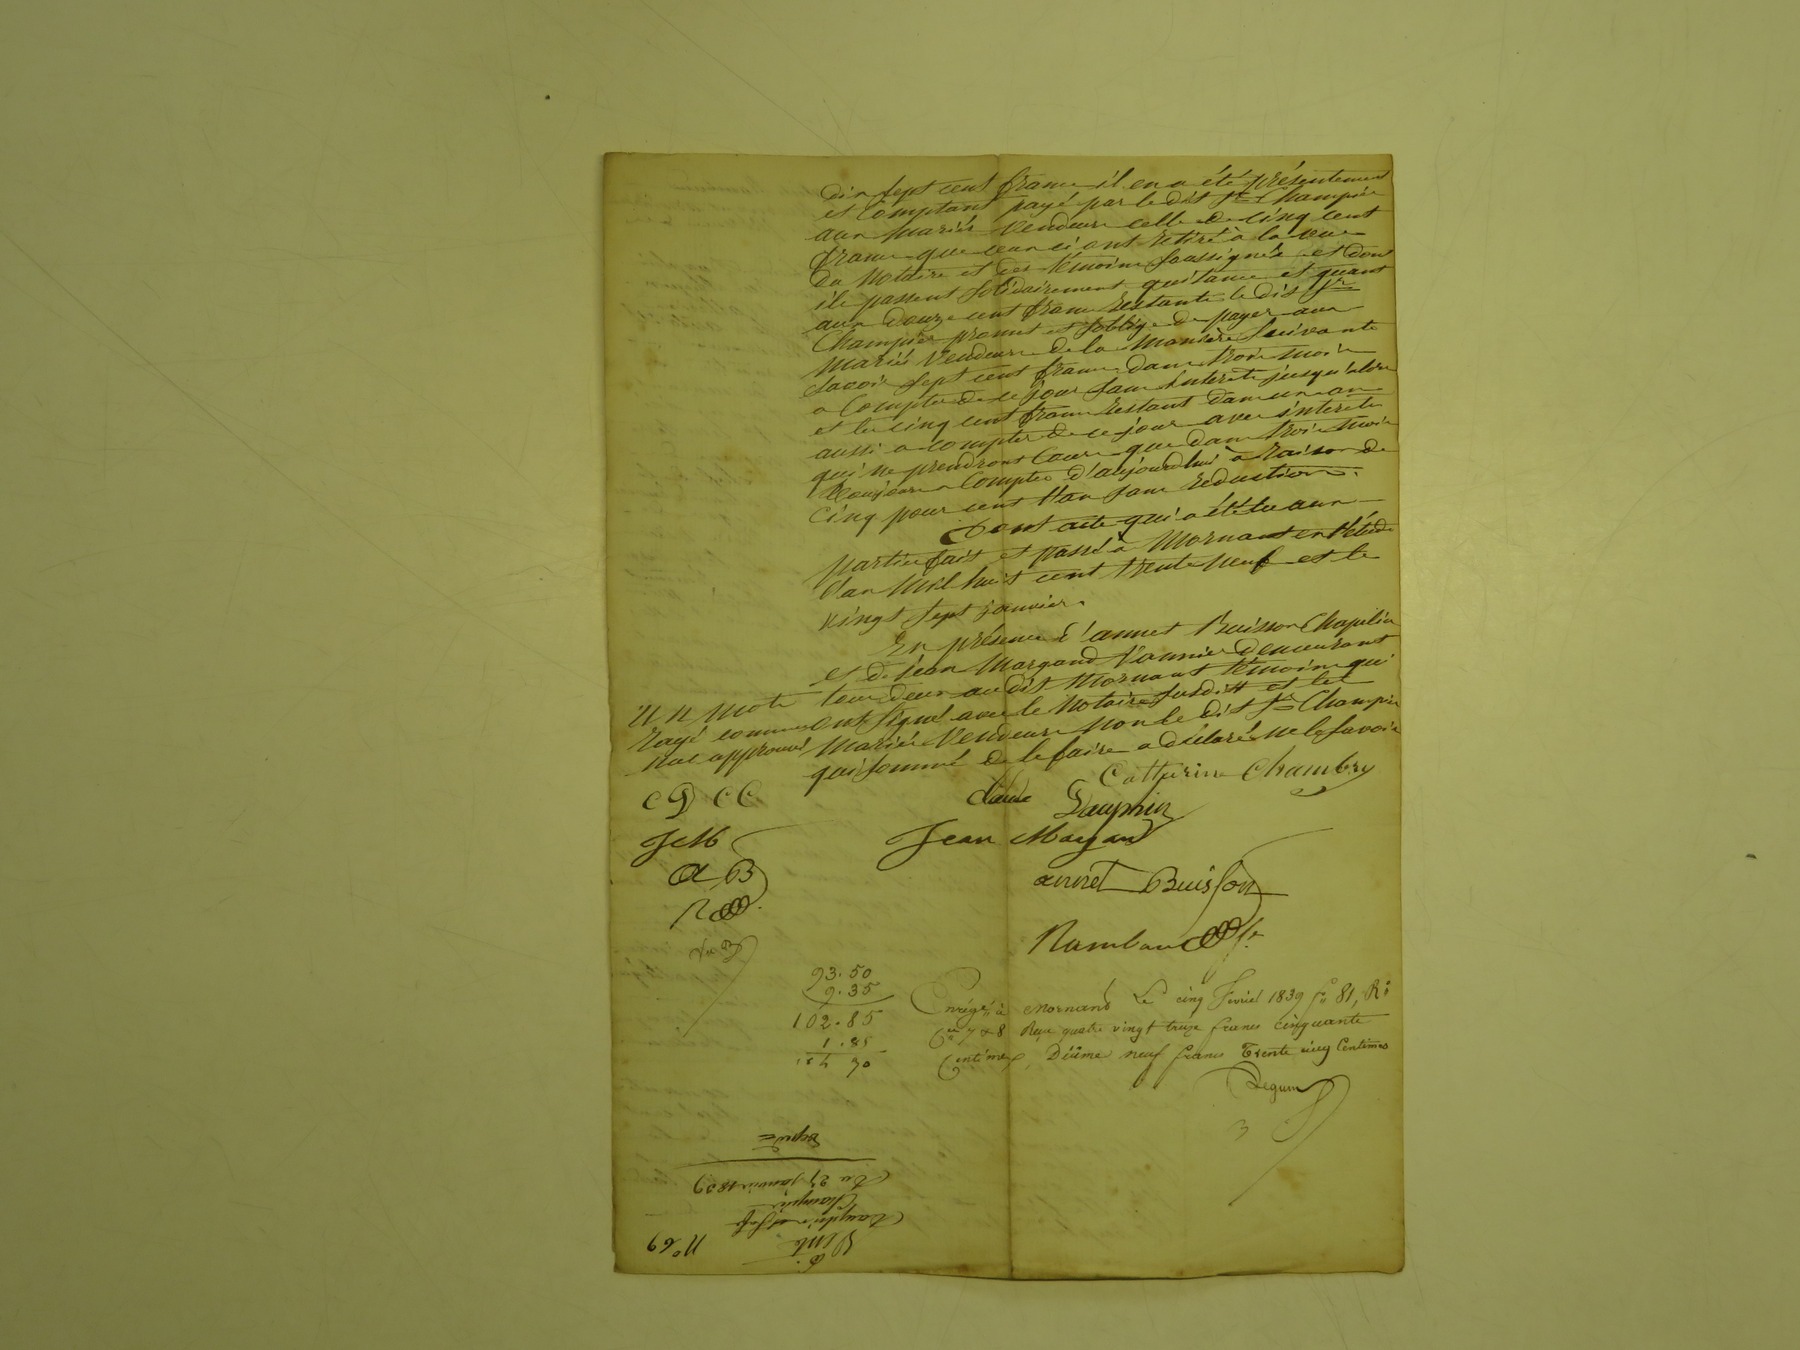 dix sept cent francs il en a été présentement
et comptant payé par le dit Sr. Champier
aux mariés Vendeurs celle de cinq cent
francs que ceux ci ont retiré à la vue
du Notaire et des témoins soussignés et dont
ils passent solidairement quitance et quant
aux douze cent francs restants le dit Sr.
Champier promet et s'oblige de payer aux
mariés Vendeurs de la manière suivante
savoir sept cent francs dans trois mois
a compter de ce jour sans intérêts jusqu'alors
et les cinq cent francs restant dans un an
aussi a compter de ce jour avec intérêts
qui ne prendront cours que dans trois mois
toujours a compter d'aujourdhui à raison de
cinq pour cent l'an sans reduction.
Dont acte qui a été lu aux
parties fait et passé à Mornant en l'étude
l'an mil huit cent trente neuf et le
vingt sept janvier.
En présence d'annet Buisson Chapelier
et de Jean Margand Vannier demeurant
tous deux au dit Mornant témoins qui
ont signé avec le Notaire susdit et les
mariés Vendeurs non le dit Sr. Champier
qui sommé de le faire a déclaré ne le savoir
un mots
rayé comme
nul approuvé
Catherine Chambry
CD CC
Claude Dauphin
JM
Jean Margand
A B
annet Buisson
R
Rambaud
93.50
9.35
102.85
1.85
104 70
Enregé. à Mornand Le cinq Fevrier 1839 fo. 81, Ro.
Ces. 7 & 8 Reçu quatre vingt treize francs cinquante
Centimes, Dixme neuf francs Trente cinq Centimes
Degum
3
No 69
Vente
Dauphin et sa fe
Champier
Du 27 janvier 1839
Expédié